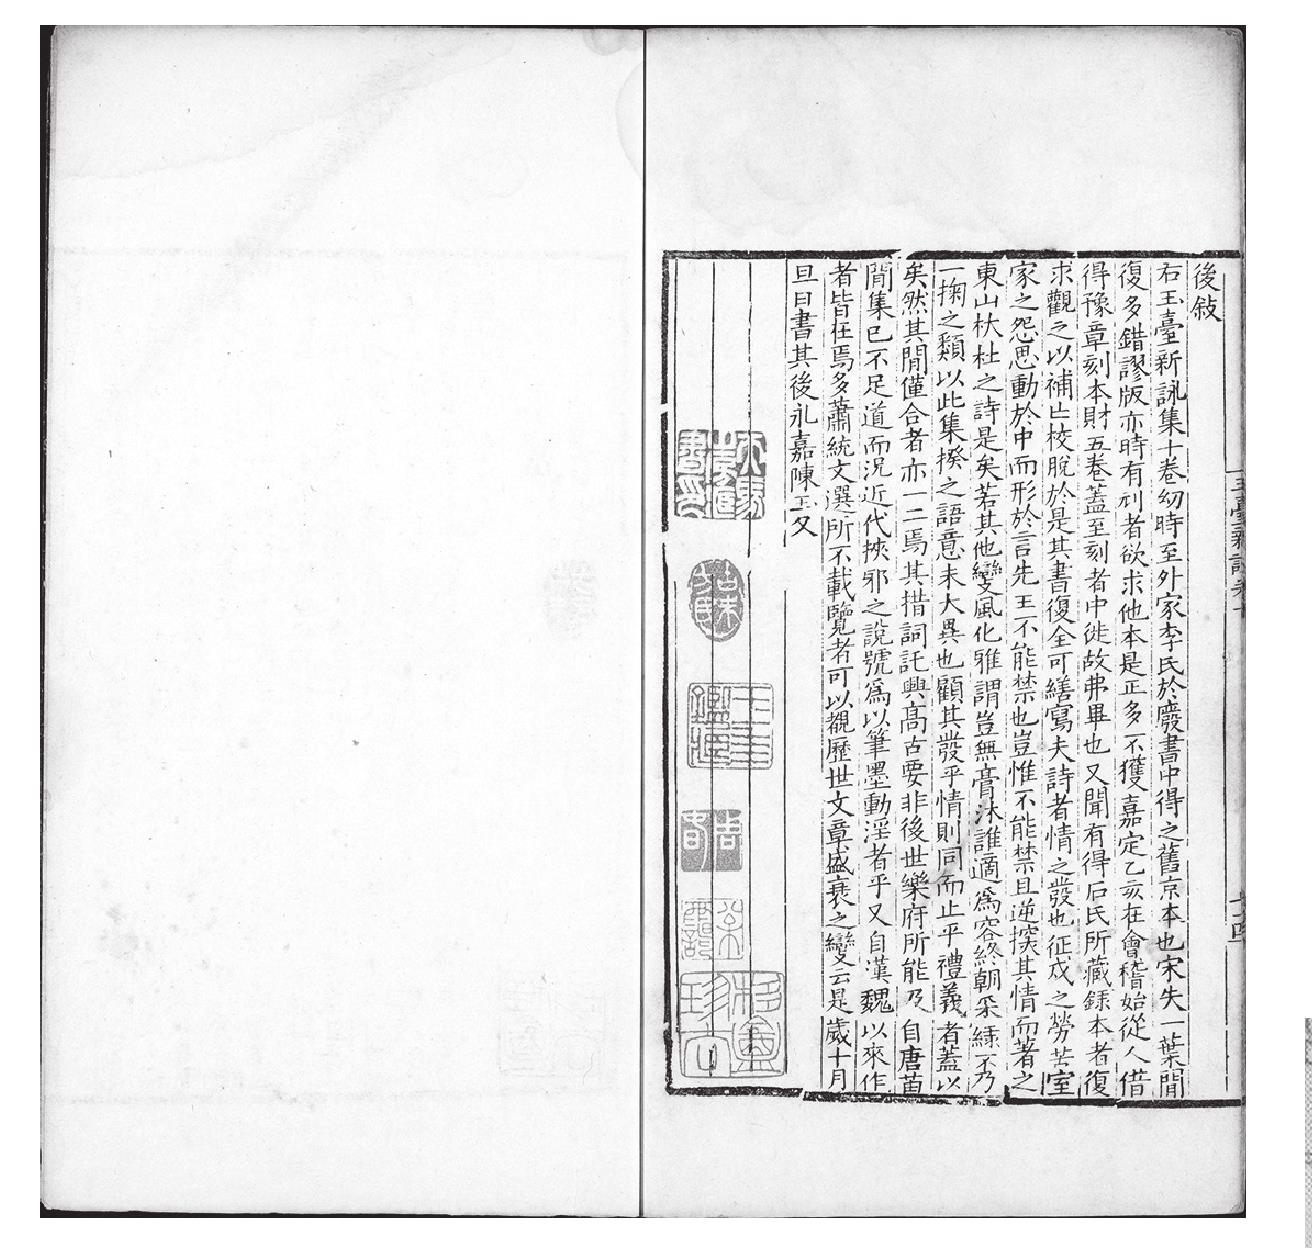 後敍
右玉臺新詠集十卷幼時至外家李氏於廢書中得之舊京本也宋失一葉閒
復多錯謬版亦時有刓者欲求他本是正多不獲嘉定乙亥在會稽始從人借
得豫章刻本財五卷蓋至刻者中徙故弗畢也又聞有得石氏所藏錄本者復
求觀之以補亡校脫於是其書復全可繕寫夫詩者情之發也征戍之勞苦室
家之怨思動於中而形於言先王不能禁也豈惟不能禁且逆探其情而著之
東山杕杜之詩是矣若其他變風化雅謂豈無膏沐誰適為容終朝采綠不乃
一掬之類以此集揆之語意未大異也顧其發乎情則同而止乎禮義者蓋以
矣然其閒僅合者亦一二焉其措詞託興高古要非後世樂府所能及自唐𦬊
閒集已不足道而況近代挾邪之說號為以筆墨動淫者乎又自漢魏以來作
者皆在焉多蕭統文選所不載覽者可以覩歷世文章盛衰之變云是歲十月
旦日書其後永嘉陳玉父
玉臺新詠卷十
十四